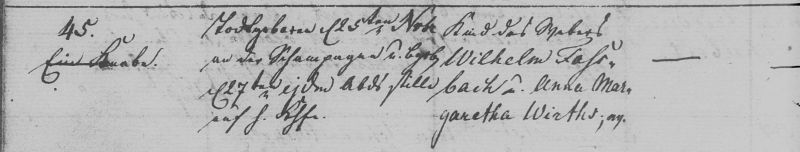 45.
Ein Knabe.
Todtgeboren d 25ten Nov
an der Schampagne u. begr
d 27ten ejdm Abds stille
auf h. Khfe.
Kind des Webers
Wilhelm Fass-
bach u. Anna Mar-
garetha Wirths,